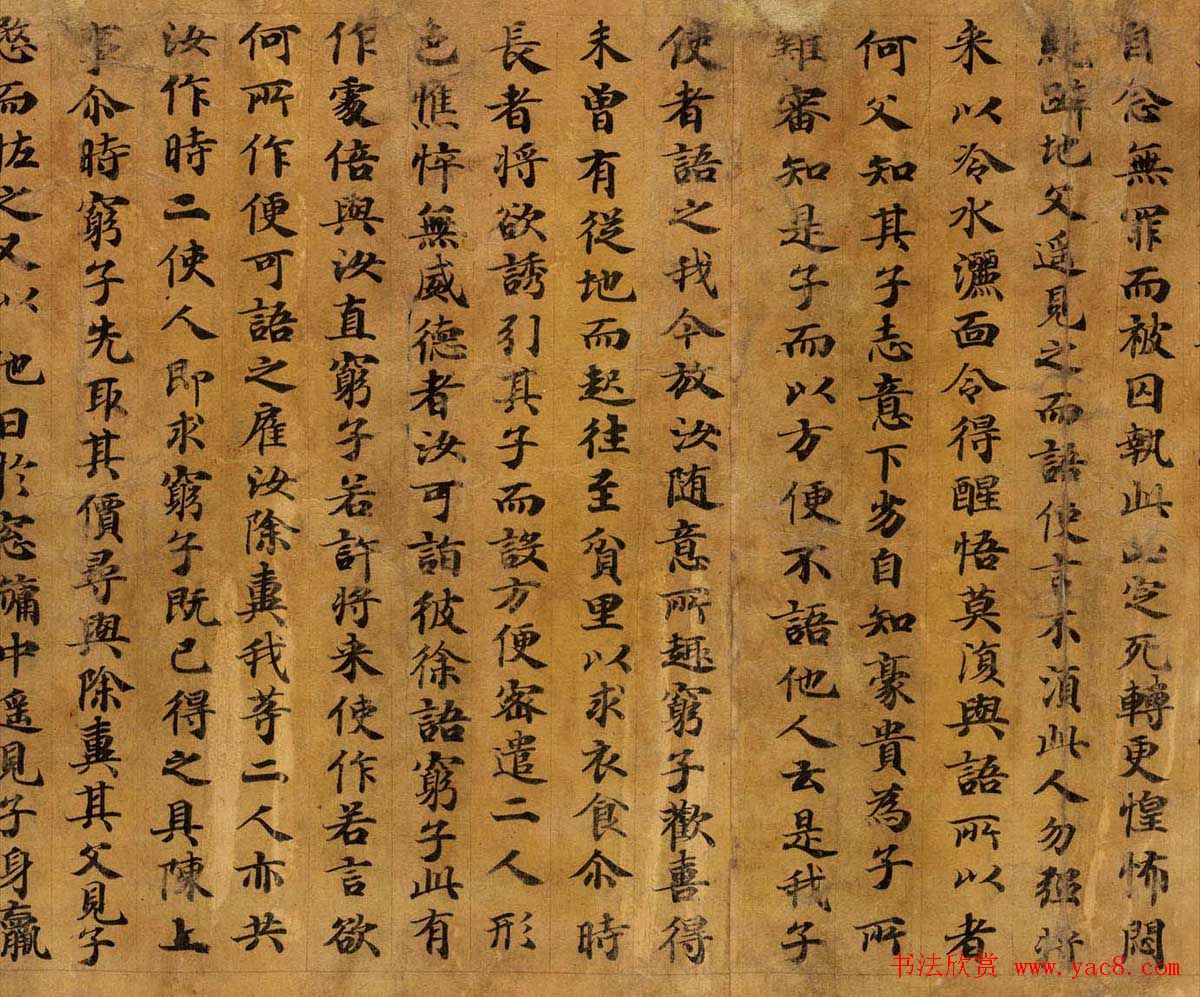 自念無罪而被囚執此必定死轉更惶怖悶
絶躃地父遥見之而語使言不湏此人勿強將
来以冷水灑面令得醒悟莫湏與語所以者
何父知其子志意下劣自知豪貴為子所
難審知是子而以方便不語他人云是我子
使者語之我今放汝随意所趣窮子歡喜得
未曾有従地而起往至貧里以求衣食尒時
長者将欲誘引其子而設方便密遣二人形
色憔悴無威德者汝可詣彼徐語窮子此有
作處倍與汝直窮子若許将来使作若言欲
何所作便可語之雇汝除糞我等二人亦共
汝作時二使人即求窮子既已得之具陳上
事尒時窮子先取其價尋與除糞其父見子
愍而恠之又以他日於窓牖中遥見子身羸
书法欣赏 www.yac8.com